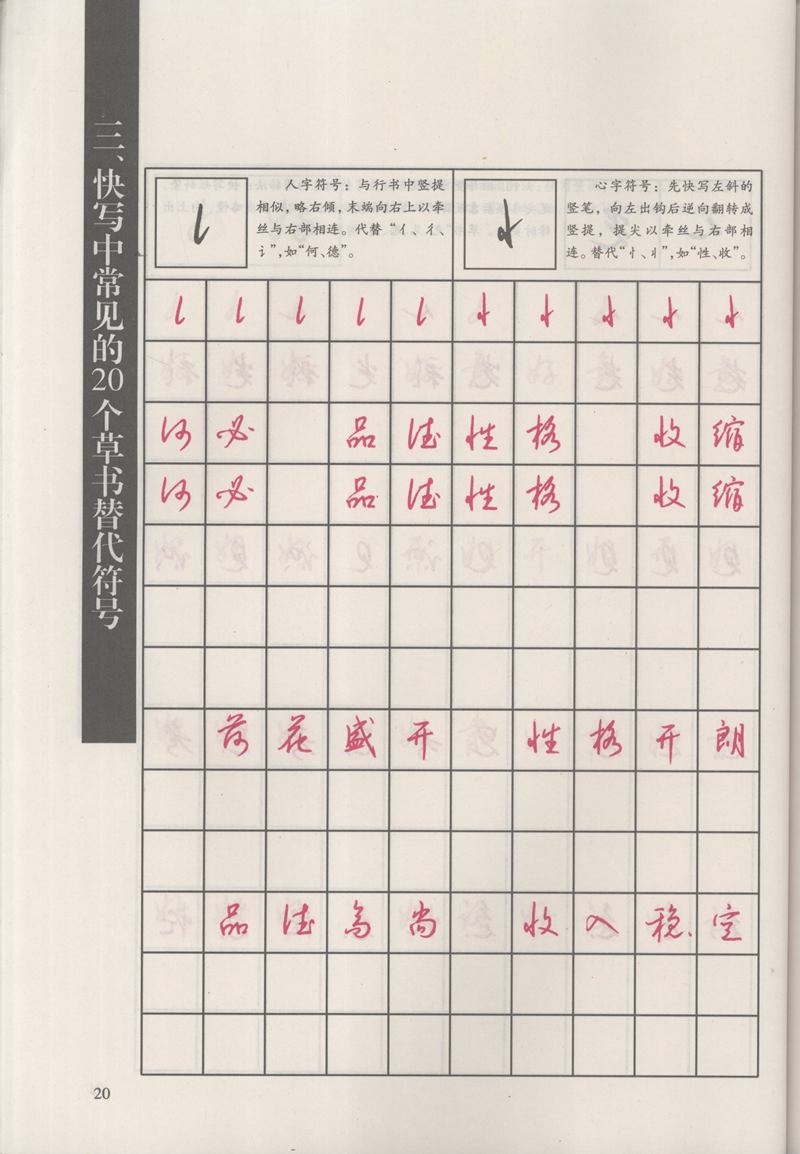 三、快写中常见的20个草书替代符号
人字符号：与行书中竖提
相似，略右倾，末端向右上以牵
丝与右部相连。代替“亻、彳、
讠”，如“何、德”。
心字符号：先快写左斜的
竖笔，向左出钩后逆向翻转成
竖提，提尖以牵丝与右部相
连。替代“忄、丬”，如“性、收”。
何必 品德性格 收缩
何必 品德性格 收缩
荷花盛开 性格开朗
品德高尚 收入稳定
20